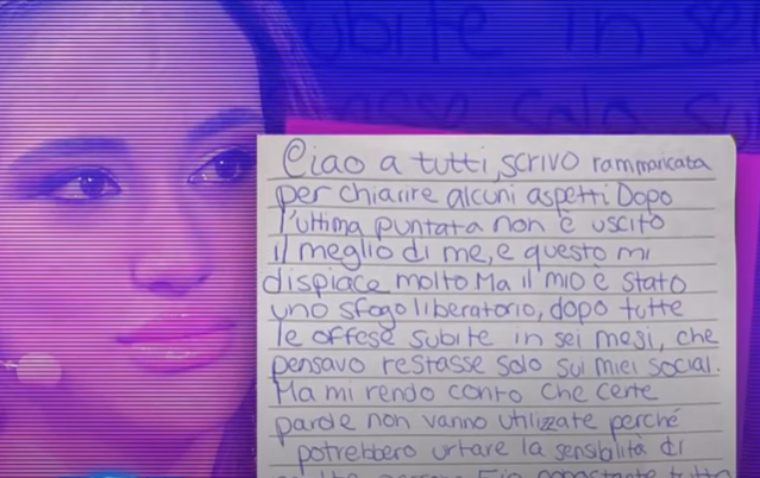 ubite in sei
asse solo su
Ciao a tutti, scrivo rammaricata
per chiarire alcuni aspetti Dopo
l'ultima puntata non è uscito
il meglio di me, e questo mi
dispiace molto Ma il mio è stato
uno sfogo liberatorio, dopo tutte
le offese subite in sei mesi, che
pensavo restasse solo sui miei social.
Ma mi rendo conto che certe
parole non vanno utilizzate perché
potrebbero urtare la sensibilità di